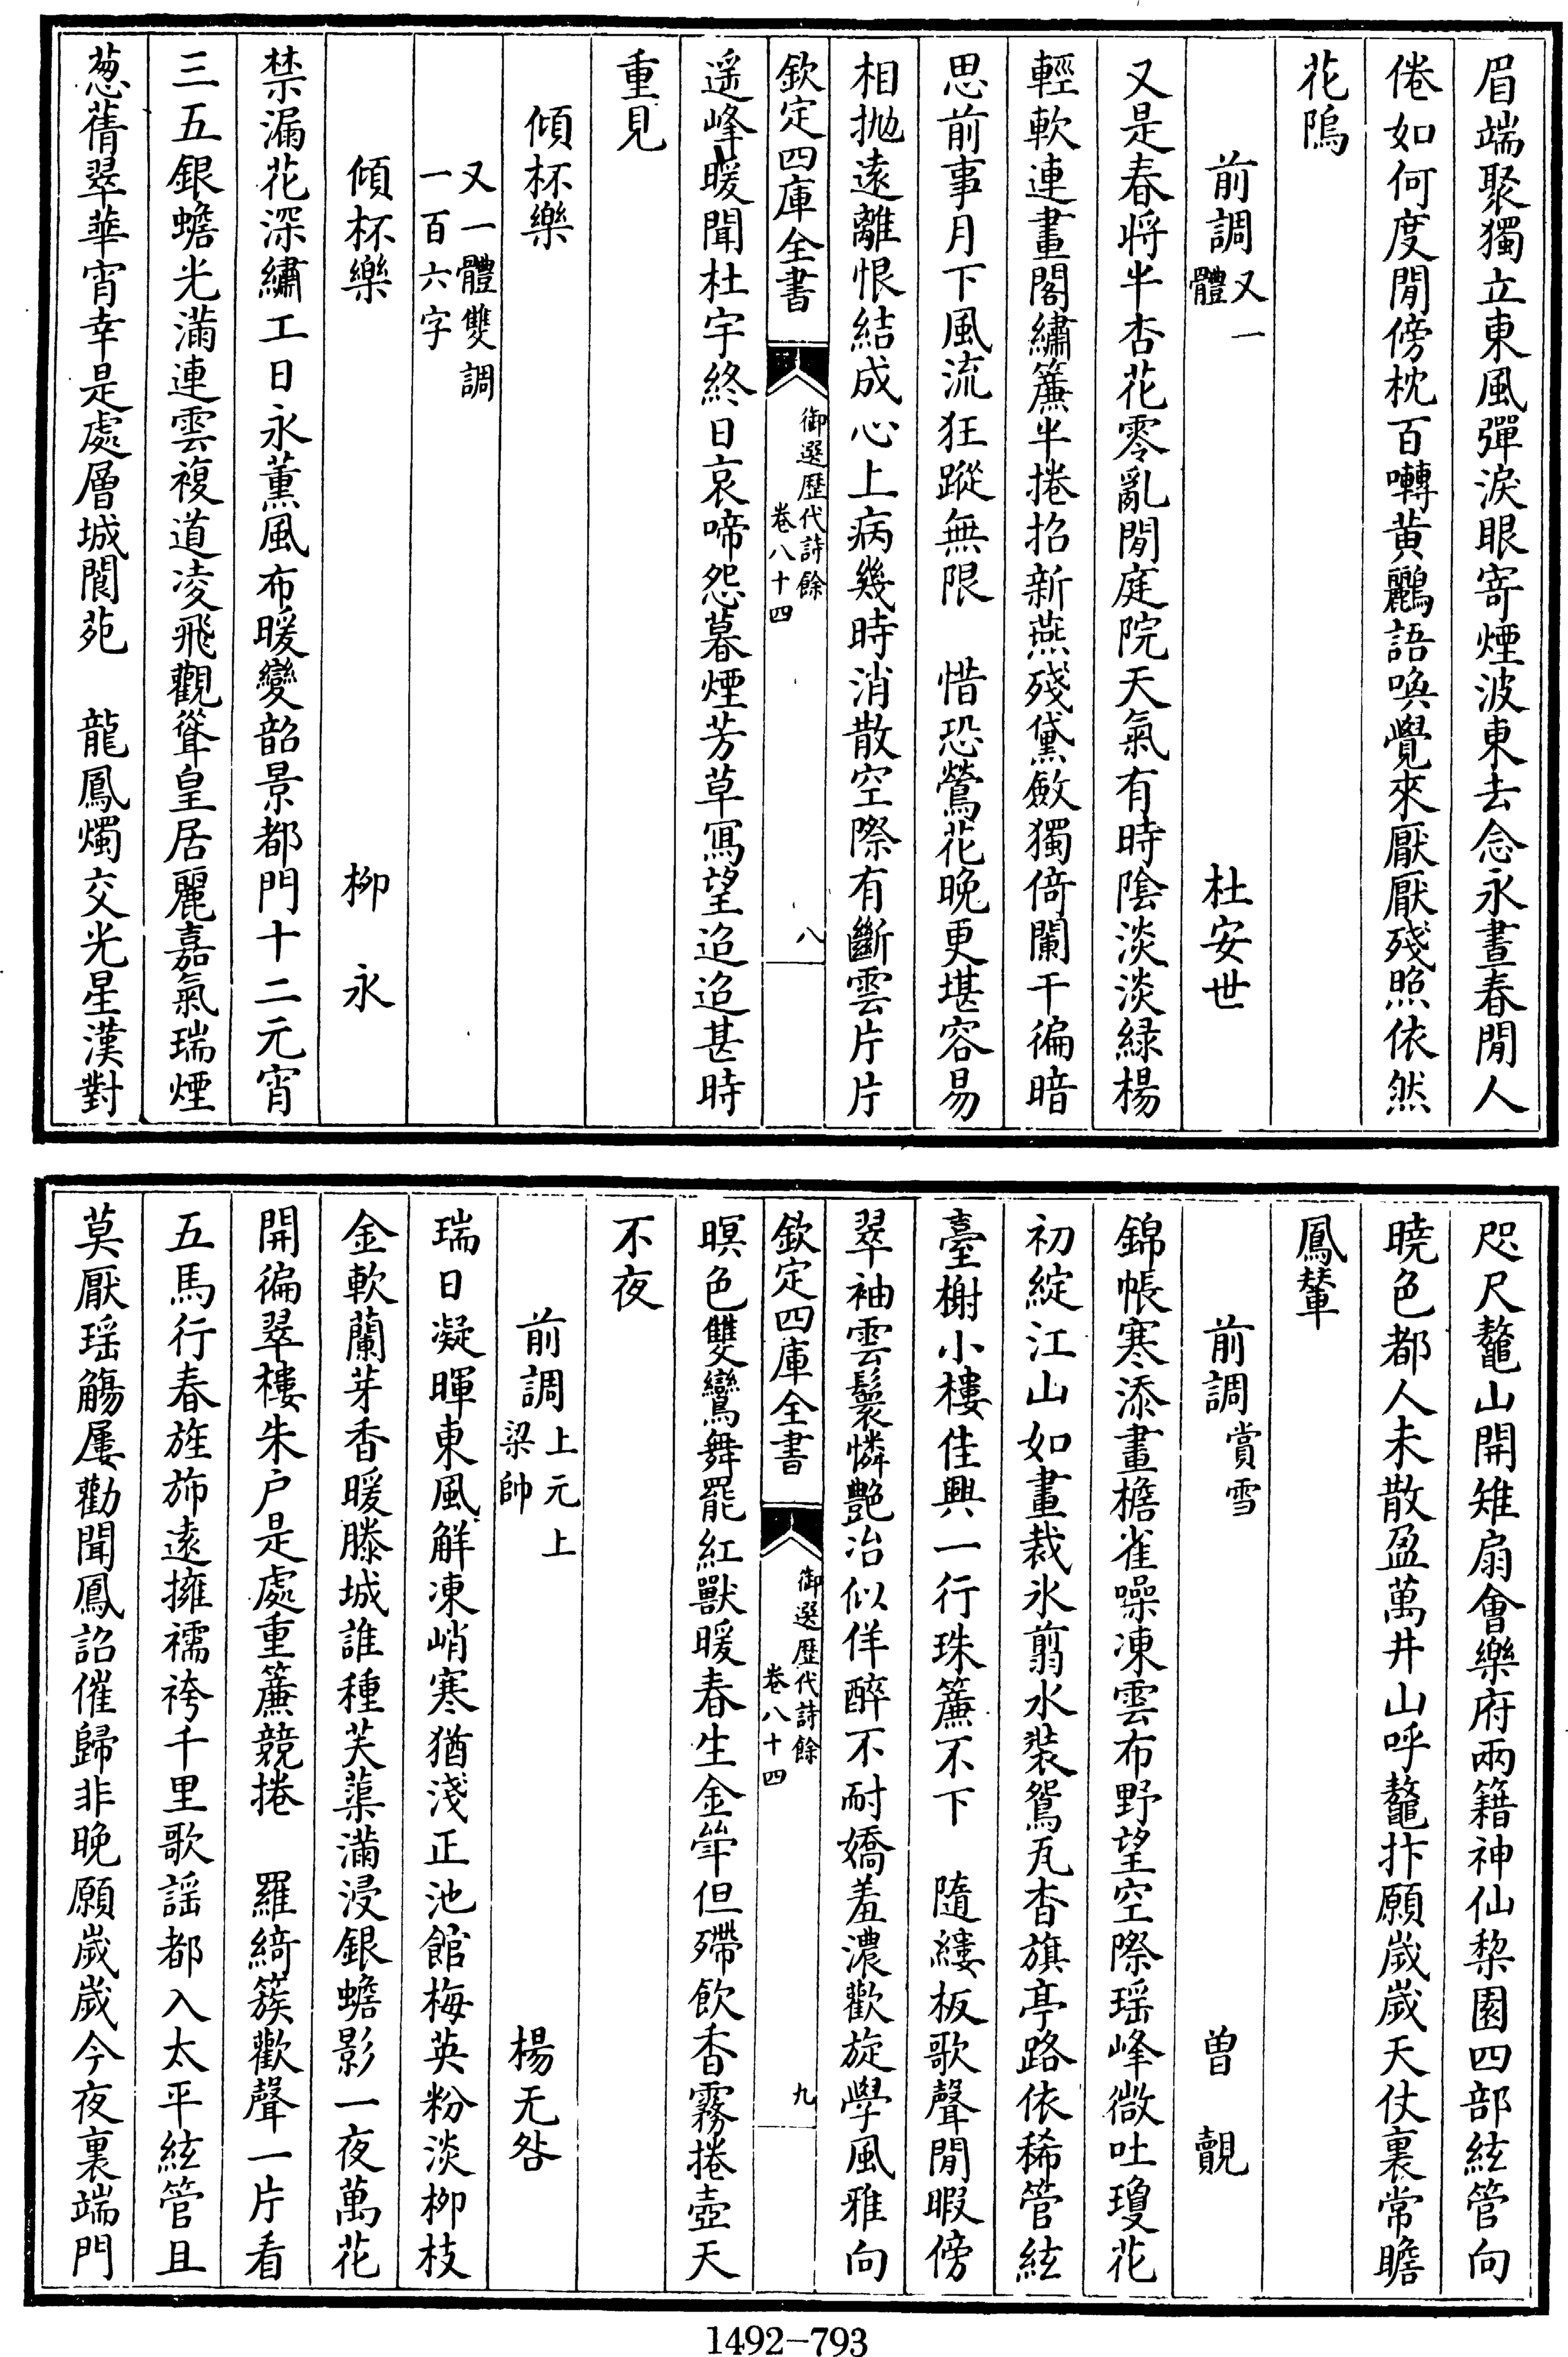 眉端聚獨立東風彈淚眼寄煙波東去念永晝春閒人
倦如何度閒傍枕百囀黄鸝語喚覺來厭厭殘照依然
花塢
前調又一體 杜安世
又是春將半杏花零亂閒庭院天氣有時陰淡淡緑楊
輕軟連畫閣繡簾半捲招新燕殘黛斂獨倚闌干徧暗
思前事月下風流狂蹤無限 惜恐鶯花晚更堪容易
相抛遠離恨結成心上病幾時消散空際有斷雲片片
欽定四庫全書 御選歴代詩餘 卷八十四 八
遥峰暖聞杜宇終日哀啼怨暮煙芳草寫望迢迢甚時
重見
傾杯樂
又一體雙調
一百六字
傾杯樂 柳永
禁漏花深繡工日永薰風布暖變韶景都門十二元宵
三五銀蟾光滿連雲複道凌飛觀聳皇居麗嘉氣瑞煙
葱蒨翠華宵幸是處層城閬苑 龍鳳燭交光星漢對
咫尺鼇山開雉扇會樂府兩籍神仙棃園四部絃管向
曉色都人未散盈萬井山呼鼇抃願嵗嵗天仗裏常瞻
鳳輦
前調賞雪 曾覿
錦帳寒添畫檐雀噪凍雲布野望空際瑶峰微吐瓊花
初綻江山如畫裁氷翦水裝鴛瓦杳旗亭路依稀管絃
臺榭小樓佳興一行珠簾不下 隨縷板歌聲閒暇傍
翠袖雲鬟憐艶冶似佯醉不耐嬌羞濃歡旋學風雅向
欽定四庫全書 御選歴代詩餘 卷八十四 九
暝色雙鸞舞罷紅獸暖春生金斝但殢飲香霧捲壺天
不夜
前調上元上梁帥 楊无咎
瑞日凝暉東風解凍峭寒猶淺正池館梅英粉淡柳枝
金軟蘭芽香暖滕城誰種芙蕖滿浸銀蟾影一夜萬花
開徧翠樓朱户是處重簾競捲 羅綺簇歡聲一片看
五馬行春旌斾遠擁襦袴千里歌謡都入太平絃管且
莫厭瑶觴屢勸聞鳳詔催歸非晚願嵗嵗今夜裏端門
1492-793